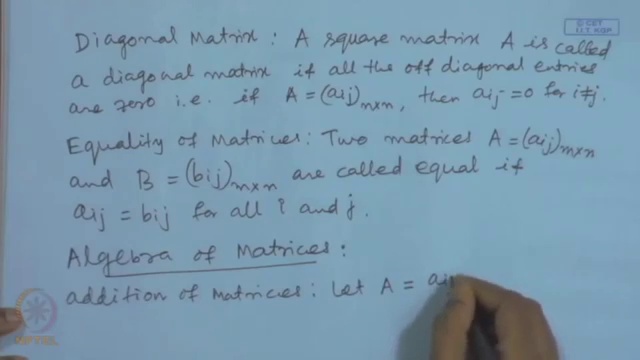 © CET
I.I.T. KGP
Diagonal Matrix : A square matrix A is called
a diagonal matrix if all the off diagonal entries
are zero i.e. if A = (aij)n×n, then aij = 0 for i≠j.
Equality of Matrices: Two matrices A = (aij)m×n
and B = (bij)m×n are called equal if
aij = bij for all i and j.
Algebra of Matrices:
addition of Matrices: Let A = aij
NPTEL